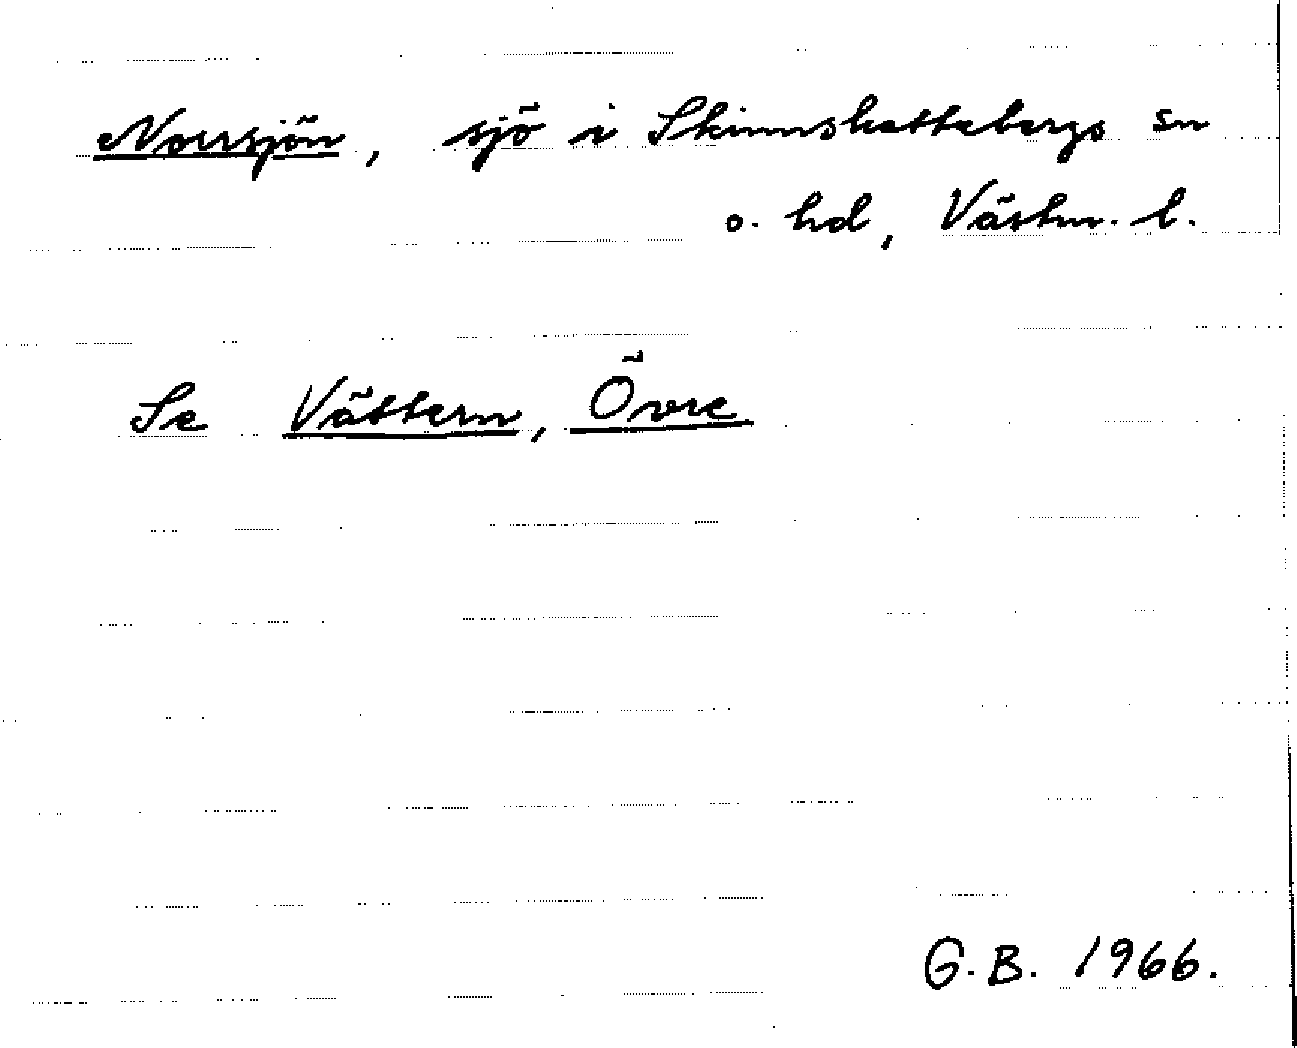 Norrsjön, sjö i Skinnskattebergs sn
o. hd, Västm. l.
Se Vättern, Övre
G.B. 1966.